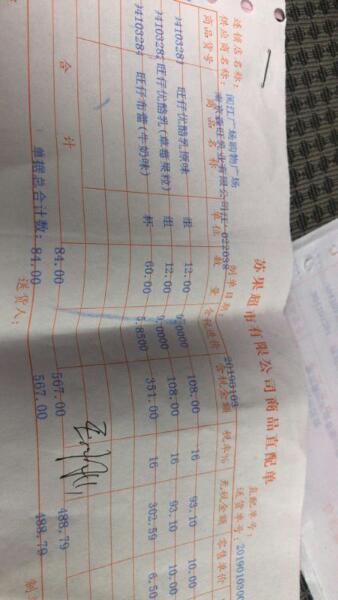 苏果超市有限公司商品直配单
直配单号:
连锁店名称: 闽江广场购物广场 送货单号: 2019010800
供应商名称: 022038 制单日期: 20190109
商品货号 商品名称 单位 数量 含税进价 含税金额 税率% 无税金额 零售单价
J4103281 旺仔优酪乳原味 组 12.00 9.0000 108.00 16 93.10 10.00
J4103282 旺仔优酪乳(草莓果粒) 组 12.00 9.0000 108.00 16 93.10 10.00
J4103284 旺仔布蕾(牛奶味) 杯 60.00 5.8500 351.00 16 302.59 6.50
合计 84.00 567.00 488.79
单据总合计数: 84.00 567.00 488.79
送货人: 制